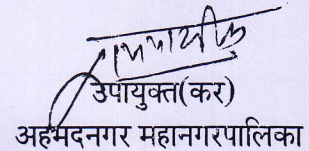 उपायुक्त(कर)
अहमदनगर महानगरपालिका